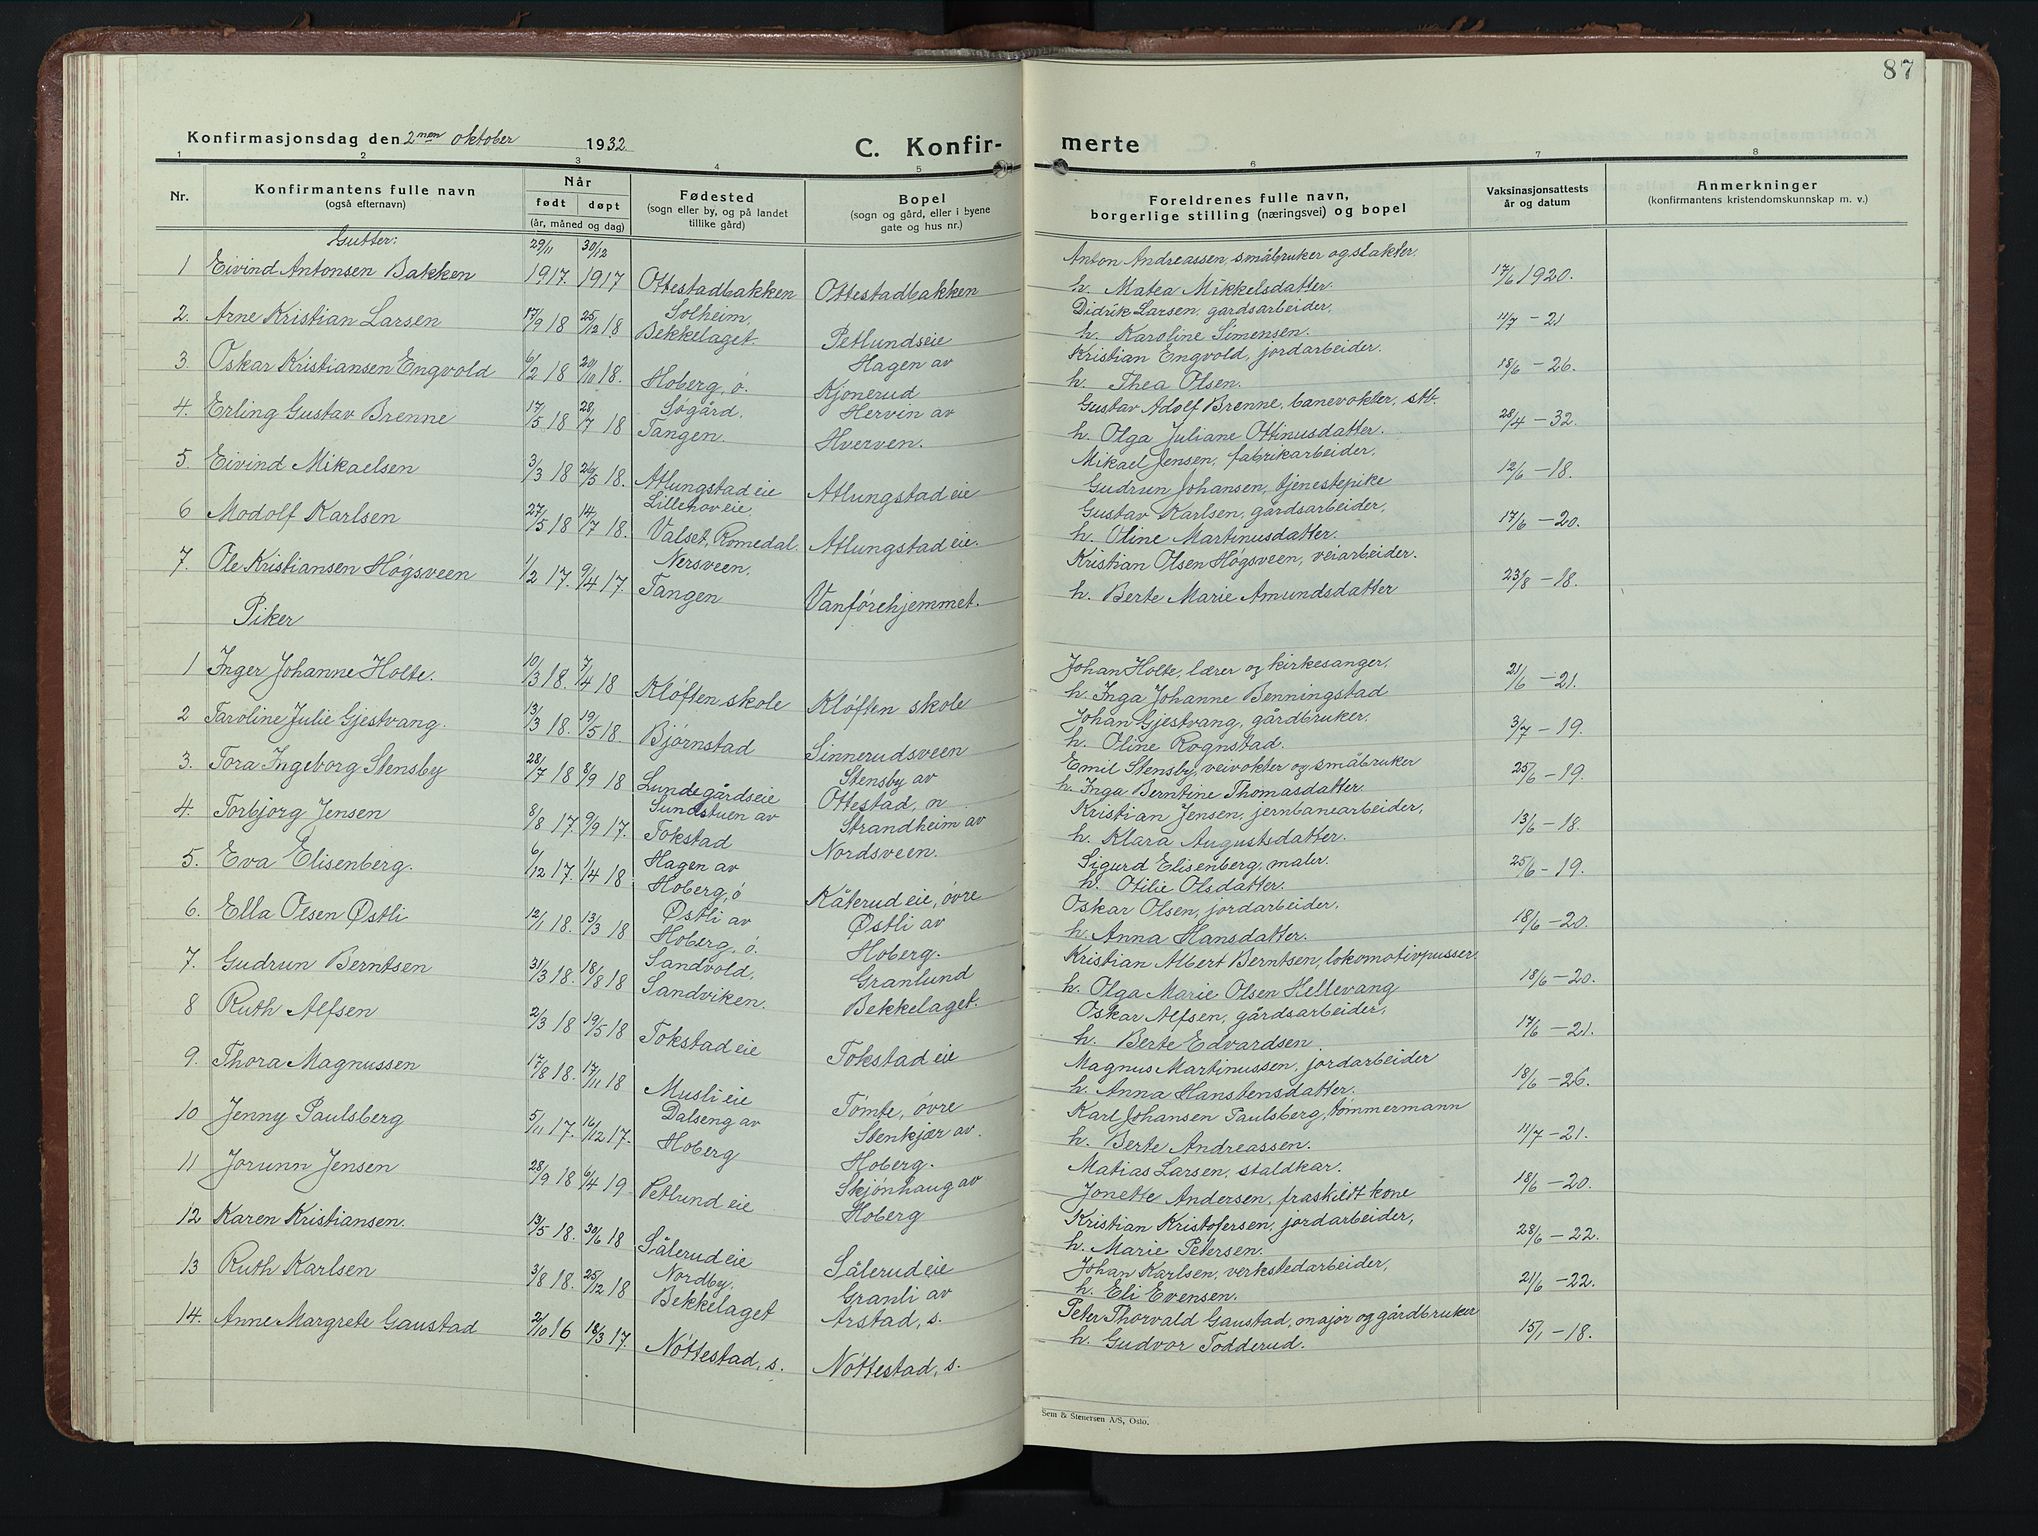 87
Konfirmasjonsdag den 2nen oktober 1932
C. Konfir-
merte
1 2 3 4 5 6 7 8
Nr.
Konfirmantens fulle navn
(også efternavn)
Når
født døpt
(år, måned og dag)
Fødested
(sogn eller by, og på landet
tillike gård)
Bopel
(sogn og gård, eller i byene
gate og hus nr.)
Foreldrenes fulle navn,
borgerlige stilling (næringsvei) og bopel
Vaksinasjonsattests
år og datum
Anmerkninger
(konfirmantens kristendomskunnskap m. v.)
Gutter:
1 Eivind Antonsen Bakken 29/11 1917. 30/12 1917 Ottestadbakken Ottestadbakken Anton Andreassen, småbruker og slakter.
h. Matea Mikkelsdatter. 17/6 1920.
2. Arne Kristian Larsen 17/9 18 25/12 18 Solheim, Bekkelaget. Petlundseie Didrik Larsen, gardsarbeider,
h. Karoline Simensen. 11/7 - 21
3 Oskar Kristiansen Engvold 6/2 18 20/10 18. Hoberg, ø. Hagen av Kjonerud Kristian Engvold, jordarbeider.
h. Thea Olsen. 18/6 - 26.
4. Erling Gustav Brenne 17/5 18 28/7 18 Søgård. Tangen. Hervin av Hverven. Gustav Adolf Brenne, banevokter, stb.
h. Olga Juliane Ottinusdatter. 28/4 - 32.
5. Eivind Mikaelsen 3/3 18 26/5 18. Atlungstad eie Atlungstad eie Mikael Jensen, fabrikarbeider,
Gudrun Johansen, tjenestepike 12/6 - 18.
6 Modolf Karlsen 27/5 18 14/7 18. Lillehov eie, Valset, Romedal. Atlungstad eie. Gustav Karlsen, gårdsarbeider,
h. Oline Martinusdatter. 17/6 - 20.
7. Ole Kristiansen Høgsveen 1/2 17. 9/4 17. Nersveen, Tangen Vanførehjemmet. Kristian Olsen Høgsveen, veiarbeider.
h. Berte Marie Amundsdatter 23/8 - 18.
Piker
1 Inger Johanne Holte. 10/3 18. 7/4 18 Kløften skole Kløften skole Johan Holte, lærer og kirkesanger,
h. Inga Johanne Benningstad 21/6 - 21.
2 Taroline Julie Gjestvang. 13/3 18. 19/5 18. Bjørnstad Sinnerudsveen Johan Gjestvang, gårdbruker,
h. Oline Rognstad. 3/7 - 19.
3. Tora Ingeborg Stensby 28/7 18 8/9 18 Lundegårdseie Stensby av Ottestad, n Emil Stensby, veivokter og småbruker
h. Inga Berntine Thomasdatter. 25/6 - 19.
4. Torbjorg Jensen 8/8 17. 9/9 17. Sundstuen av Tokstad Strandheim av Nordsveen. Kristian Jensen, jernbanearbeider,
h. Klara Augustsdatter. 13/6 - 18.
5. Eva Elisenberg. 6/12 17. 1/4 18 Hagen av Hoberg, ø Kåterud eie, øvre Sigurd Elisenberg, maler.
h. Otilie Olsdatter. 25/6 - 19.
6. Ella Olsen Østli 12/1 18. 13/3 18 Østli av Hoberg, ø. Østli av Hoberg. Oskar Olsen, jordarbeider,
h. Anna Hansdatter. 18/6 - 20.
7. Gudrun Berntsen 31/3 18. 18/8 18 Sandvold, Sandviken. Granlund Bekkelaget. Kristian Albert Berntsen, lokomotivpusser
h. Olga Marie Olsen Hellevang 18/6 - 20.
8 Ruth Alfsen 2/3 18 19/5 18 Tokstad eie Tokstad eie Oskar Alfsen, gårdsarbeider,
h. Berte Edvardsen 17/6 - 21.
9. Thora Magnussen 17/8 18. 17/11 18 Musli eie Tomte, øvre Magnus Martinussen, jordarbeider
h. Anna Hanstensdatter. 18/6 - 26.
10 Jenny Paulsberg 5/11 17. 16/12 17. Dalseng av Hoberg Stenkjær av Hoberg. Karl Johansen Paulsberg, tømmermann
h. Berte Andreassen. 11/7 - 21.
11 Jorunn Jensen 28/9 18 6/4 19 Petlund eie Skjønhaug av Hoberg Matias Larsen, staldkar.
Jonette Andersen, fraskildt kone 18/6 - 20.
12 Karen Kristiansen. 13/5 18. 30/6 18 Sålerud eie Sålerud eie Kristian Kristofersen, jordarbeider,
h. Marie Petersen. 28/6 - 22.
13 Ruth Karlsen 3/8 18. 25/12 18 Nordby, Bekkelaget Granli av Arstad, s. Johan Karlsen, verkstedarbeider,
h. Eli Evensen. 21/6 - 22.
14. Anne Margrete Gaustad 2/10 16 18/3 17. Nøttestad, s. Nøttestad, s. Peter Thorvald Gaustad, major og gårdbruker
h. Gudvor Todderud. 15/1 - 18.
Sem & Stenersen A/S, Oslo.